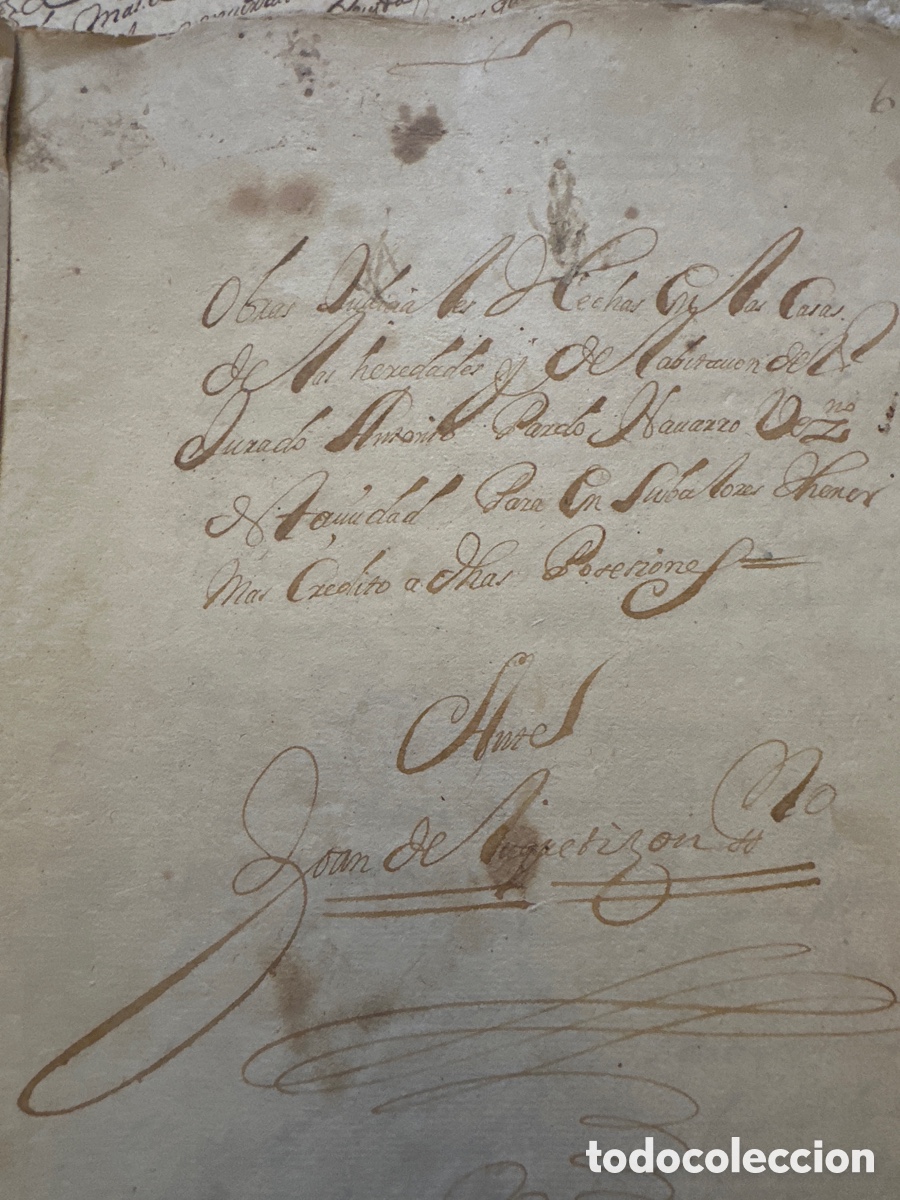 6
Obras Judiciales Hechas En las Casas
de las heredades y de la abitacion de
Jurado Antonio Pardo Navarro Vezno
de Para En Subalores thener
Mas Credito a dhas Posesiones
Ante
Joan de No
todocoleccion